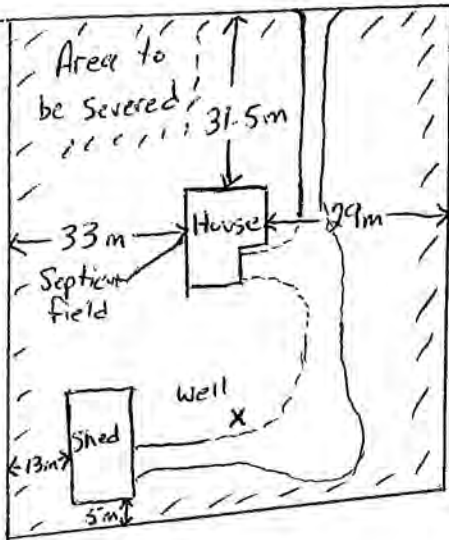 Area to
be Severed
31.5m
House
29m
33m
Septic
field
well
x
Shed
13m
5m